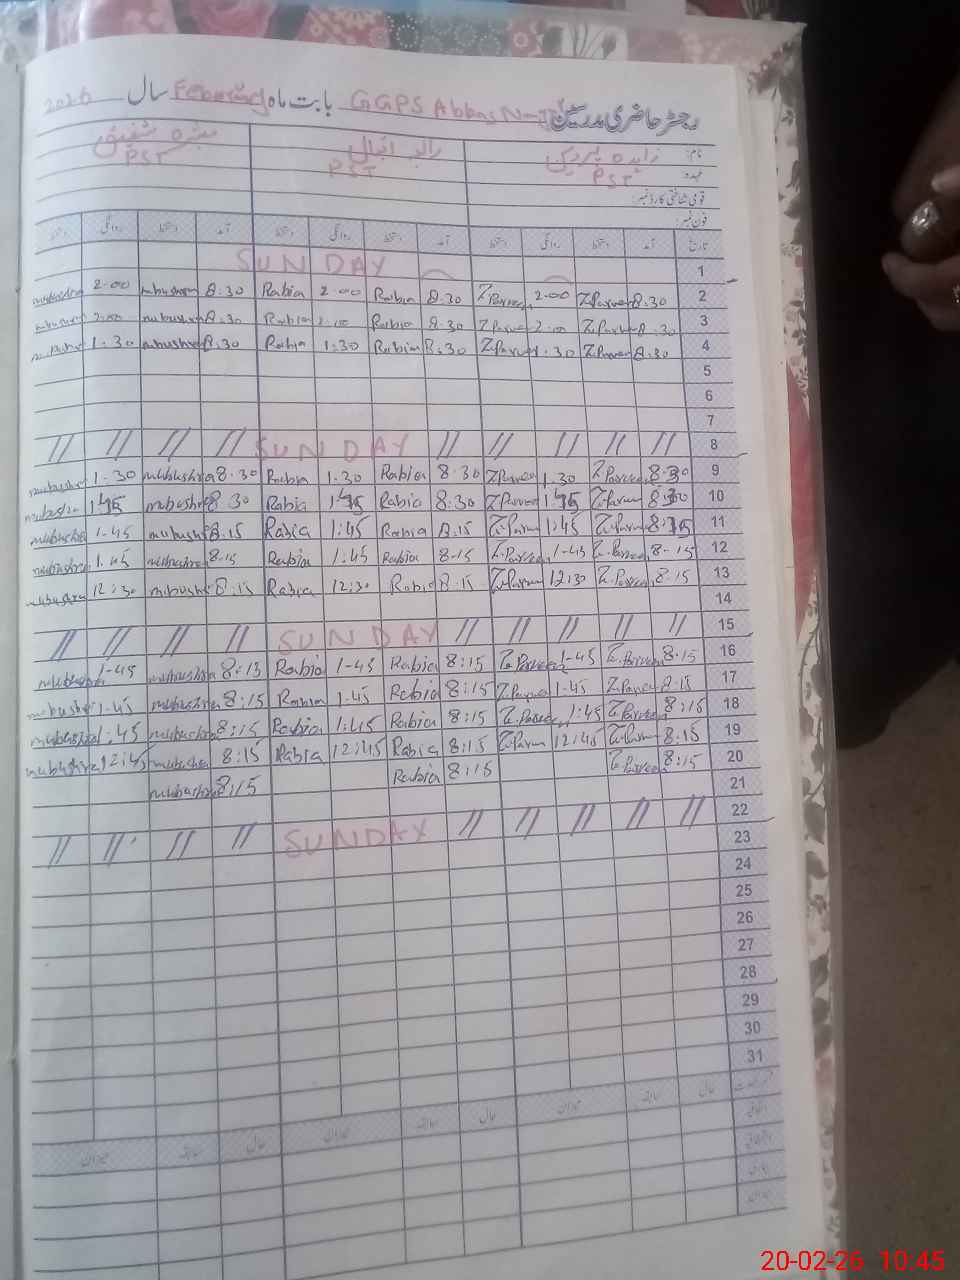 رجسٹر حاضری مدرسین GGPS Abbas بابت ماہ February سال 2026
نام: زاہدہ پروین رابعہ اقبال
عہدہ: PST PST PST
قومی شناختی کارڈ نمبر:
فون نمبر:
تاریخ آمد دستخط روانگی دستخط آمد دستخط روانگی دستخط آمد دستخط روانگی دستخط
1 SUNDAY
2 8.30 Z.Parveen 2.00 Z.Parveen 8.30 Rabia 2.00 Rabia 8.30 mubushra 2.00 mubushra
3 8.30 Z.Parveen 2.00 Z.Parveen 8.30 Rabia 2.00 Rabia 8.30 mubushra 2.00 mubushra
4 8.30 Z.Parveen 1.30 Z.Parveen 8.30 Rabia 1.30 Rabia 8.30 mubushra 1.30 mubushra
5
6
7
8 // // // // // SUNDAY // // // //
9 8.30 Z.Parveen 1.30 Z.Parveen 8.30 Rabia 1.30 Rabia 8.30 mubushra 1.30 mubushra
10 8.30 Z.Parveen 1:45 Z.Parveen 8.30 Rabia 1:45 Rabia 8.30 mubushra 1:45 mubushra
11 8:15 Z.Parveen 1:45 Z.Parveen 8.15 Rabia 1:45 Rabia 8.15 mubushra 1-45 mubushra
12 8-15 Z.Parveen 1-45 Z.Parveen 8-15 Rabia 1:45 Rabia 8-15 mubushra 1.45 mubushra
13 8.15 Z.Parveen 12:30 Z.Parveen 8.15 Rabia 12:30 Rabia 8.15 mubushra 12:30 mubushra
14
15 // // // // // SUNDAY // // // //
16 8.15 Z.Parveen 1-45 Z.Parveen 8:15 Rabia 1-45 Rabia 8:15 mubushra 1-45 mubushra
17 8.15 Z.Parveen 1-45 Z.Parveen 8:15 Rabia 1.45 Rabia 8:15 mubushra 1-45 mubushra
18 8:15 Z.Parveen 1:45 Z.Parveen 8:15 Rabia 1:45 Rabia 8:15 mubushra 1:45 mubushra
19 8.15 Z.Parveen 12:45 Z.Parveen 8:15 Rabia 12:45 Rabia 8:15 mubushra 12:45 mubushra
20 8:15 Z.Parveen 8:15 Rabia 8:15 mubushra
21
22 // // // // // SUNDAY // // // //
23
24
25
26
27
28
29
30
31
سابقہ حال میزان سابقہ حال میزان سابقہ حال
20-02-26 10:45